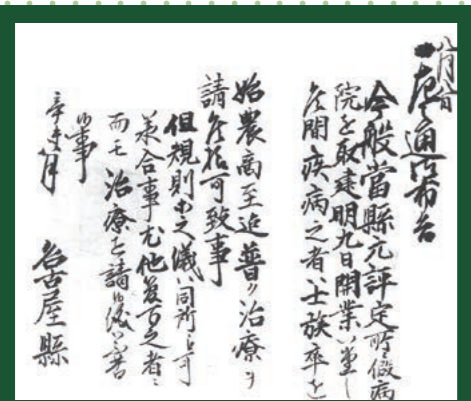 八月八日
一左之通布告
今般當縣元評定所ニ假病
院を取建明九日開業いたし
候間疾病之者ハ士族卒を
始農商至迄普ク治療ヲ
請候様可致事
但規則等之儀ハ同所ニ而可
承合事尤他管下之者ニ
而モ治療を請候儀不苦
候事
辛未八月 名古屋縣